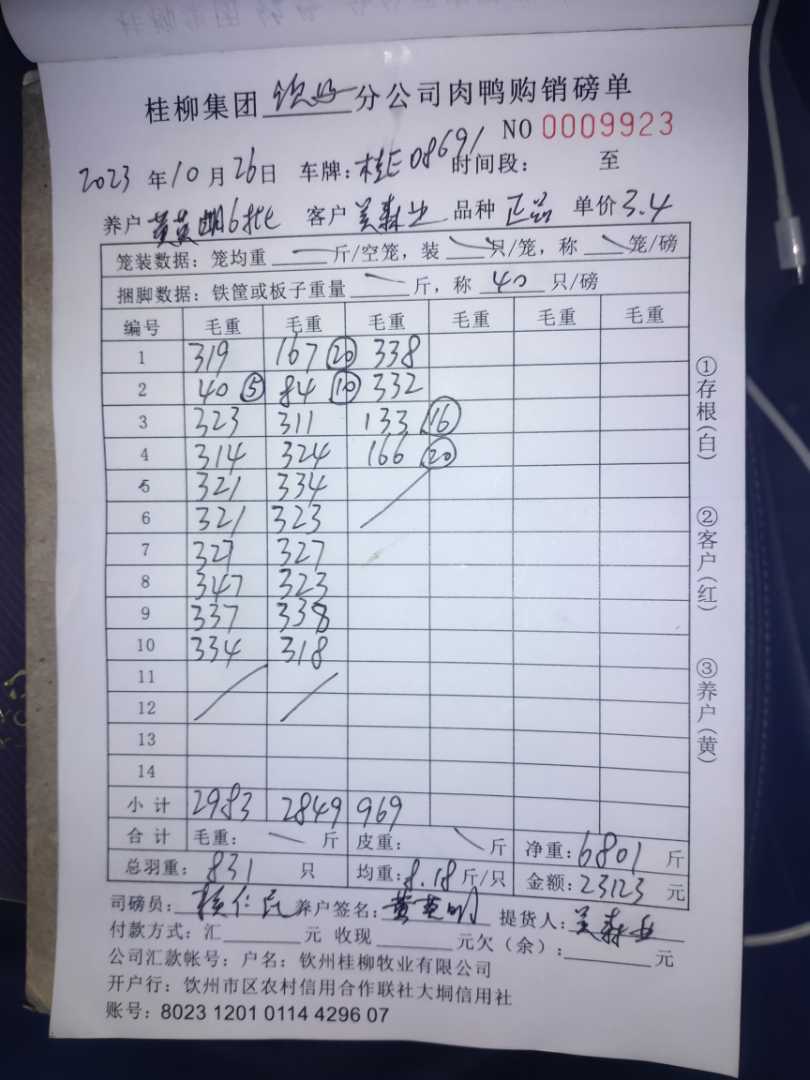 桂柳集团 钦州 分公司肉鸭购销磅单
NO 0009923
2023 年 10 月 26 日 车牌：桂E08691 时间段： 至
养户 黄英明6批 客户 吴森业 品种 正品 单价 3.4
笼装数据：笼均重 一 斤/空笼，装 只/笼，称 笼/磅
捆脚数据：铁筐或板子重量 一 斤，称 40 只/磅
编号 毛重 毛重 毛重 毛重 毛重 毛重
1 319 167 ⑳ 338
2 40 ⑤ 84 ⑩ 332
3 323 311 133 ⑯
4 314 324 166 ⑳
5 321 334
6 321 323
7 327 327
8 347 323
9 337 338
10 334 318
11
12
13
14
小计 2983 2849 969
合计 毛重： 斤 皮重： 斤 净重：6801 斤
总羽重：831 只 均重：8.18 斤/只 金额：23123 元
司磅员： 仁 养户签名：黄英明 提货人：吴森业
付款方式：汇 元 收现 元欠（余）： 元
公司汇款帐号：户名：钦州桂柳牧业有限公司
开户行：钦州市区农村信用合作联社大垌信用社
账号：8023 1201 0114 4296 07
①存根（白）
②客户（红）
③养户（黄）